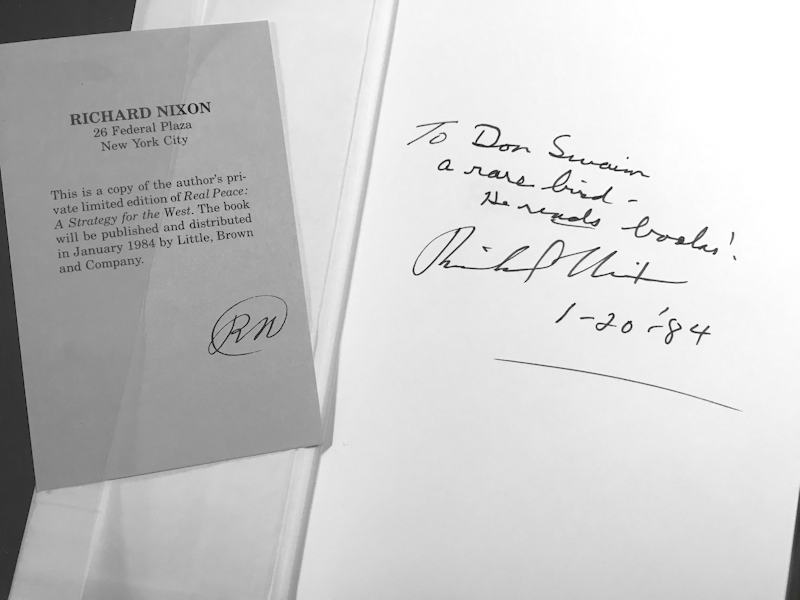 RICHARD NIXON
26 Federal Plaza
New York City
This is a copy of the author's pri-
vate limited edition of Real Peace:
A Strategy for the West. The book
will be published and distributed
in January 1984 by Little, Brown
and Company.
RN
To Don Swaim
a rare bird -
He reads books!
Richard Nixon
1-20-'84